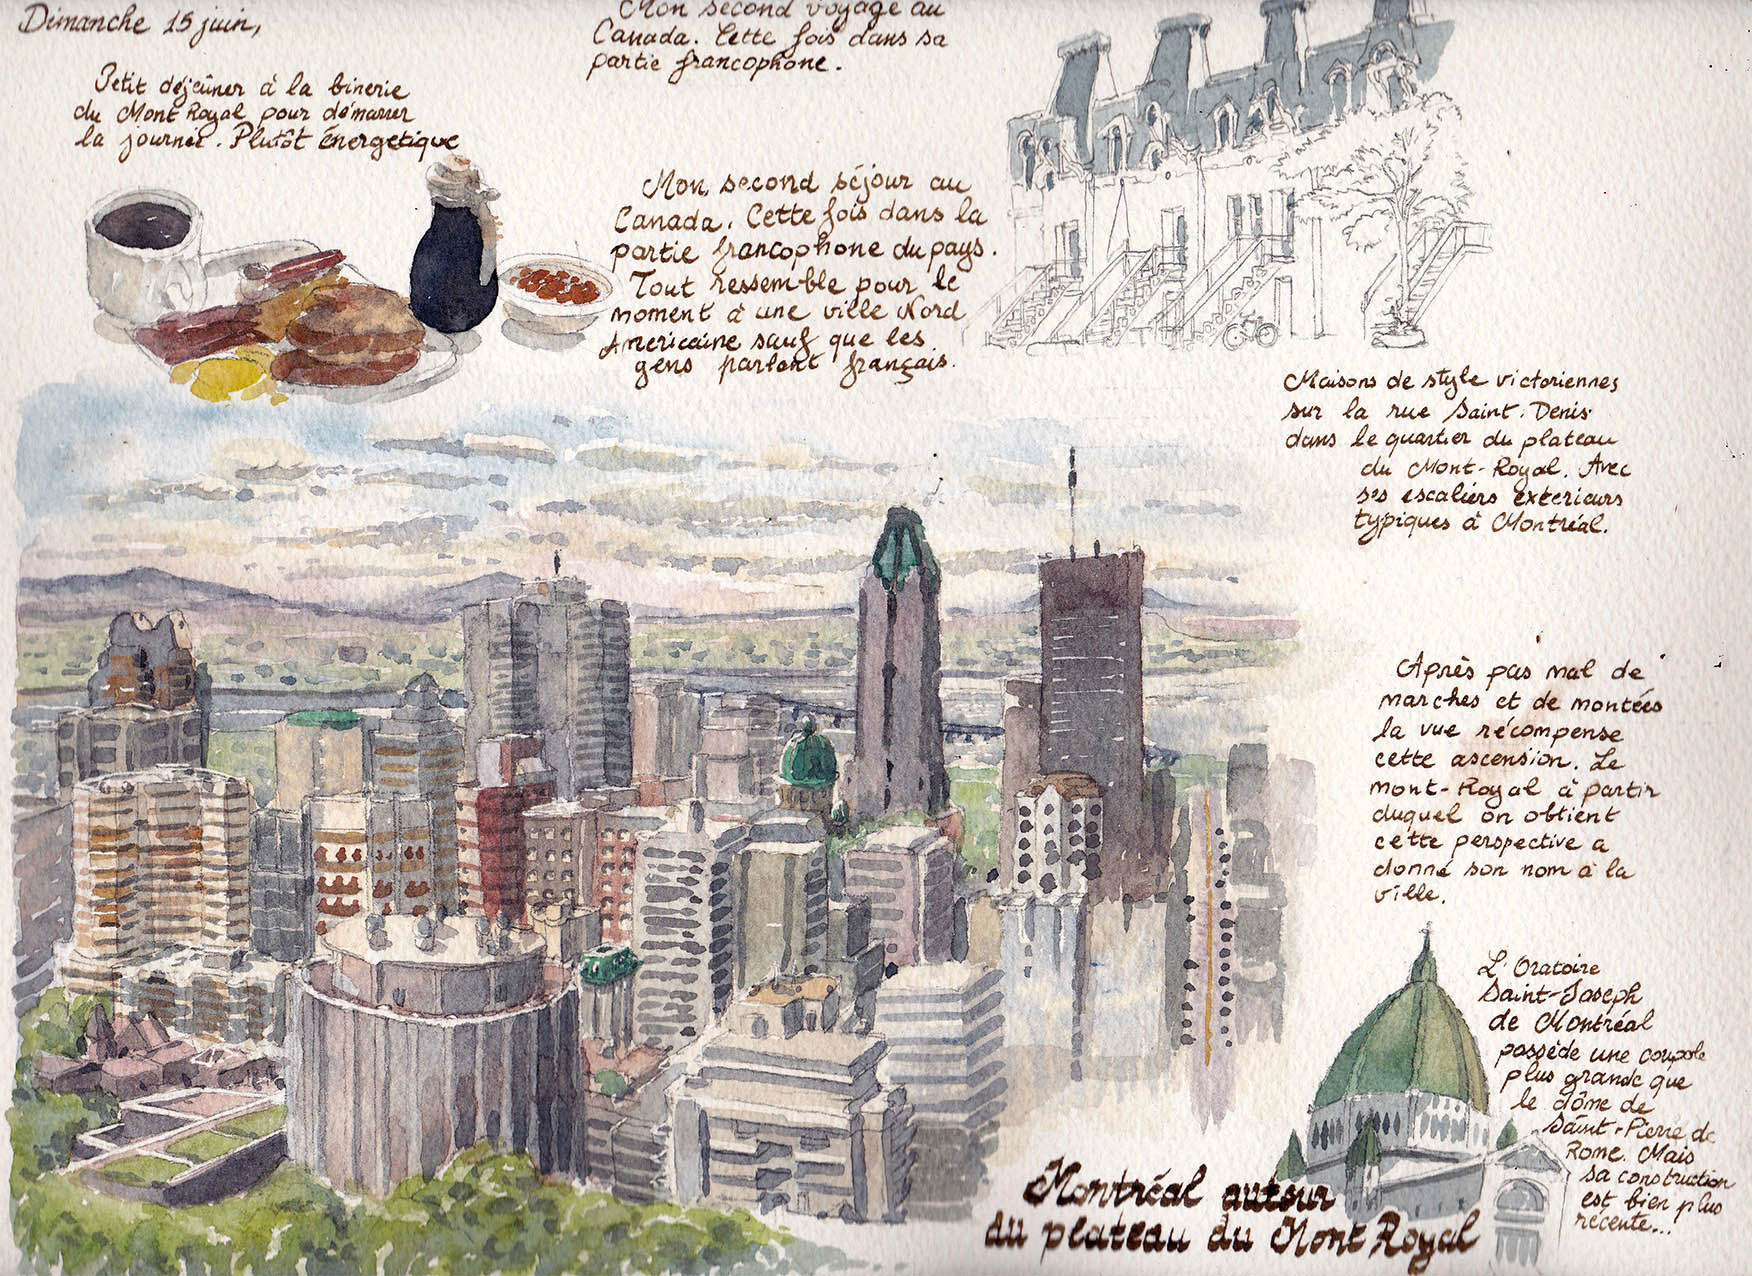 Dimanche 15 juin,
Petit déjeûner à la binerie
du Mont Royal pour démarrer
la journée. Plutôt énergetique
Mon second voyage au
Canada. Cette fois dans sa
partie francophone.
Mon second séjour au
Canada. Cette fois dans la
partie francophone du pays.
Tout ressemble pour le
moment à une ville Nord
Americaine sauf que les
gens parlent français.
Maisons de style victoriennes
sur la rue Saint-Denis
dans le quartier du plateau
du Mont-Royal. Avec
ses escaliers exterieurs
typiques à Montréal.
Après pas mal de
marches et de montées
la vue récompense
cette ascension. Le
mont-Royal à partir
duquel on obtient
cette perspective a
donné son nom à la
ville.
L'Oratoire
Saint-Joseph
de Montréal
possède une coupole
plus grande que
le dôme de
Saint-Pierre de
Rome. Mais
sa construction
est bien plus
récente...
Montréal autour
du plateau du Mont Royal